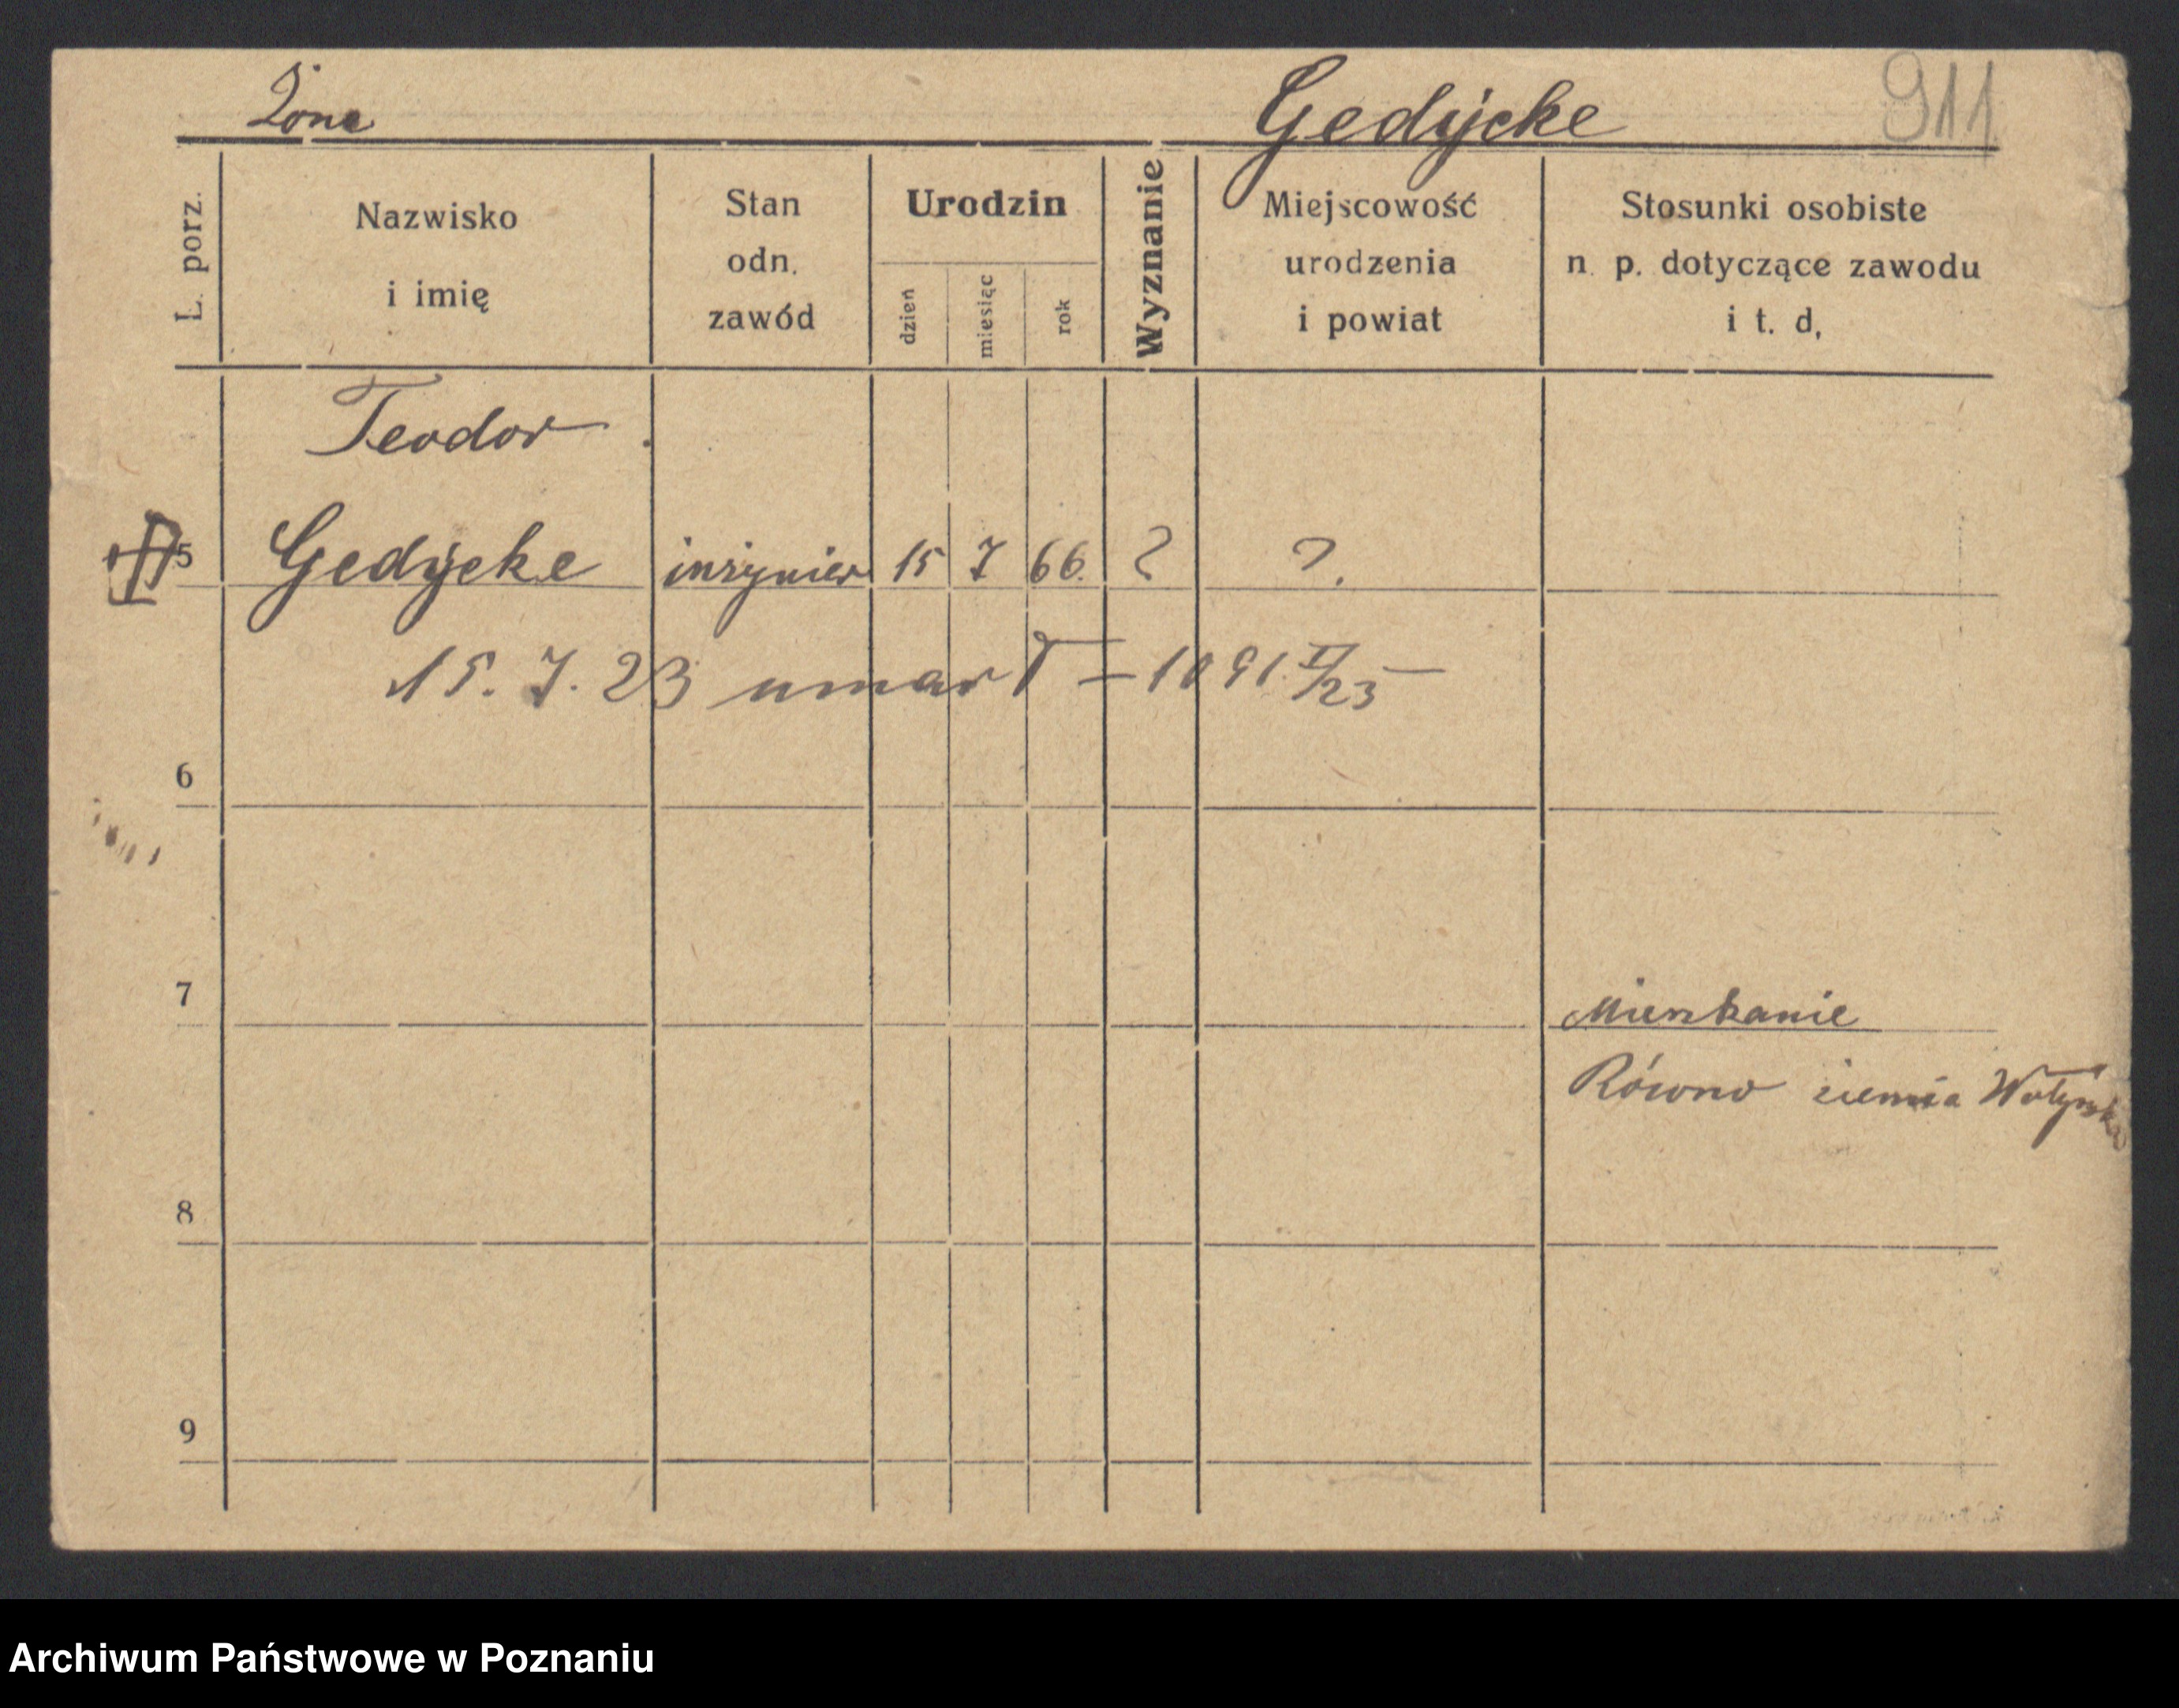 Żona Gedÿcke 911
L. porz.
Nazwisko
i imię
Stan
odn.
zawód
Urodzin
dzień
miesiąc
rok
Wyznanie
Miejscowość
urodzenia
i powiat
Stosunki osobiste
n. p. dotyczące zawodu
i t. d,
Teodor
5 Gedÿcke inżynier 15 7 66. ? ?.
15. 7. 23 umarł 1091 /23
6
7
Mieszkanie
Równo ziemia Wołyńska
8
9
Archiwum Państwowe w Poznaniu